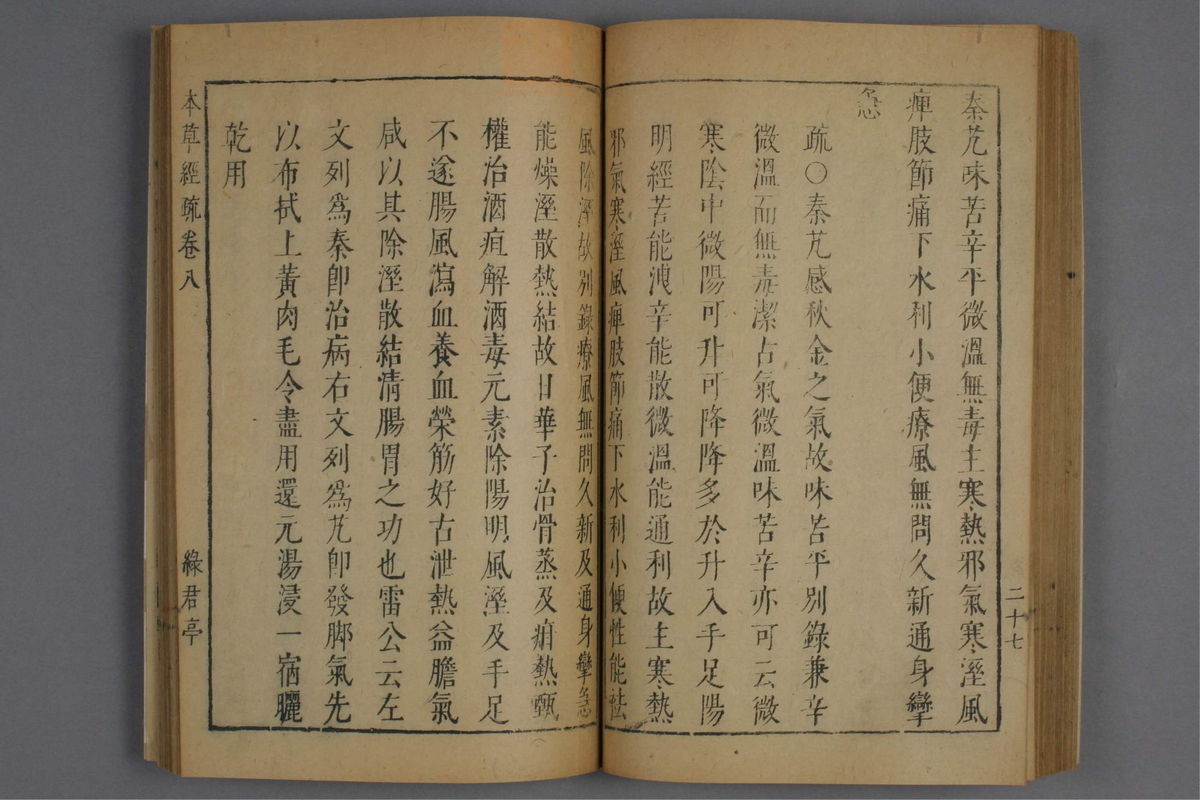 二十七
秦艽味苦辛平微溫無毒主寒熱邪氣寒溼風
痺肢節痛下水利小便療風無問久新通身攣
急
疏〇秦艽感秋金之氣故味苦平別錄兼辛
微溫而無毒潔古氣微溫味苦辛亦可云微
寒陰中微陽可升可降降多於升入手足陽
明經苦能洩辛能散微溫能通利故主寒熱
邪氣寒溼風痺肢節痛下水利小便性能祛
風除溼故別錄療風無問久新及通身攣急
能燥溼散熱結故日華子治骨蒸及疳熱甄
權治酒疸解酒毒元素除陽明風溼及手足
不遂腸風瀉血養血榮筋好古泄熱益膽氣
咸以其除溼散結清腸胃之功也雷公云左
文列為秦卽治病右文列為艽卽發脚氣先
以布拭上黃肉毛令盡用還元湯浸一宿曬
乾用
本草經疏卷八
綠君亭